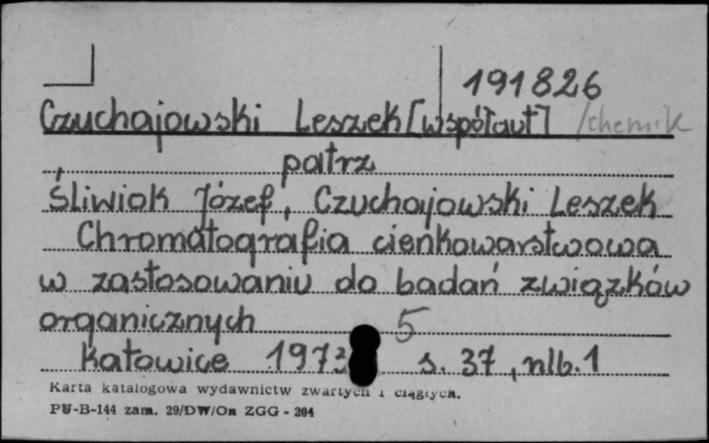 191826
Czuchajowski Leszek [współaut] /chemik
patrz
Śliwiok Józef, Czuchajowski Leszek
Chromatografia cienkowarstwowa
w zastosowaniu do badań związków
organicznych 5
Katowice 1973 s. 37, nlb. 1
Karta katalogowa wydawnictw zwartych i ciągłych.
PU-B-144 zam. 29/DW/On ZGG - 204